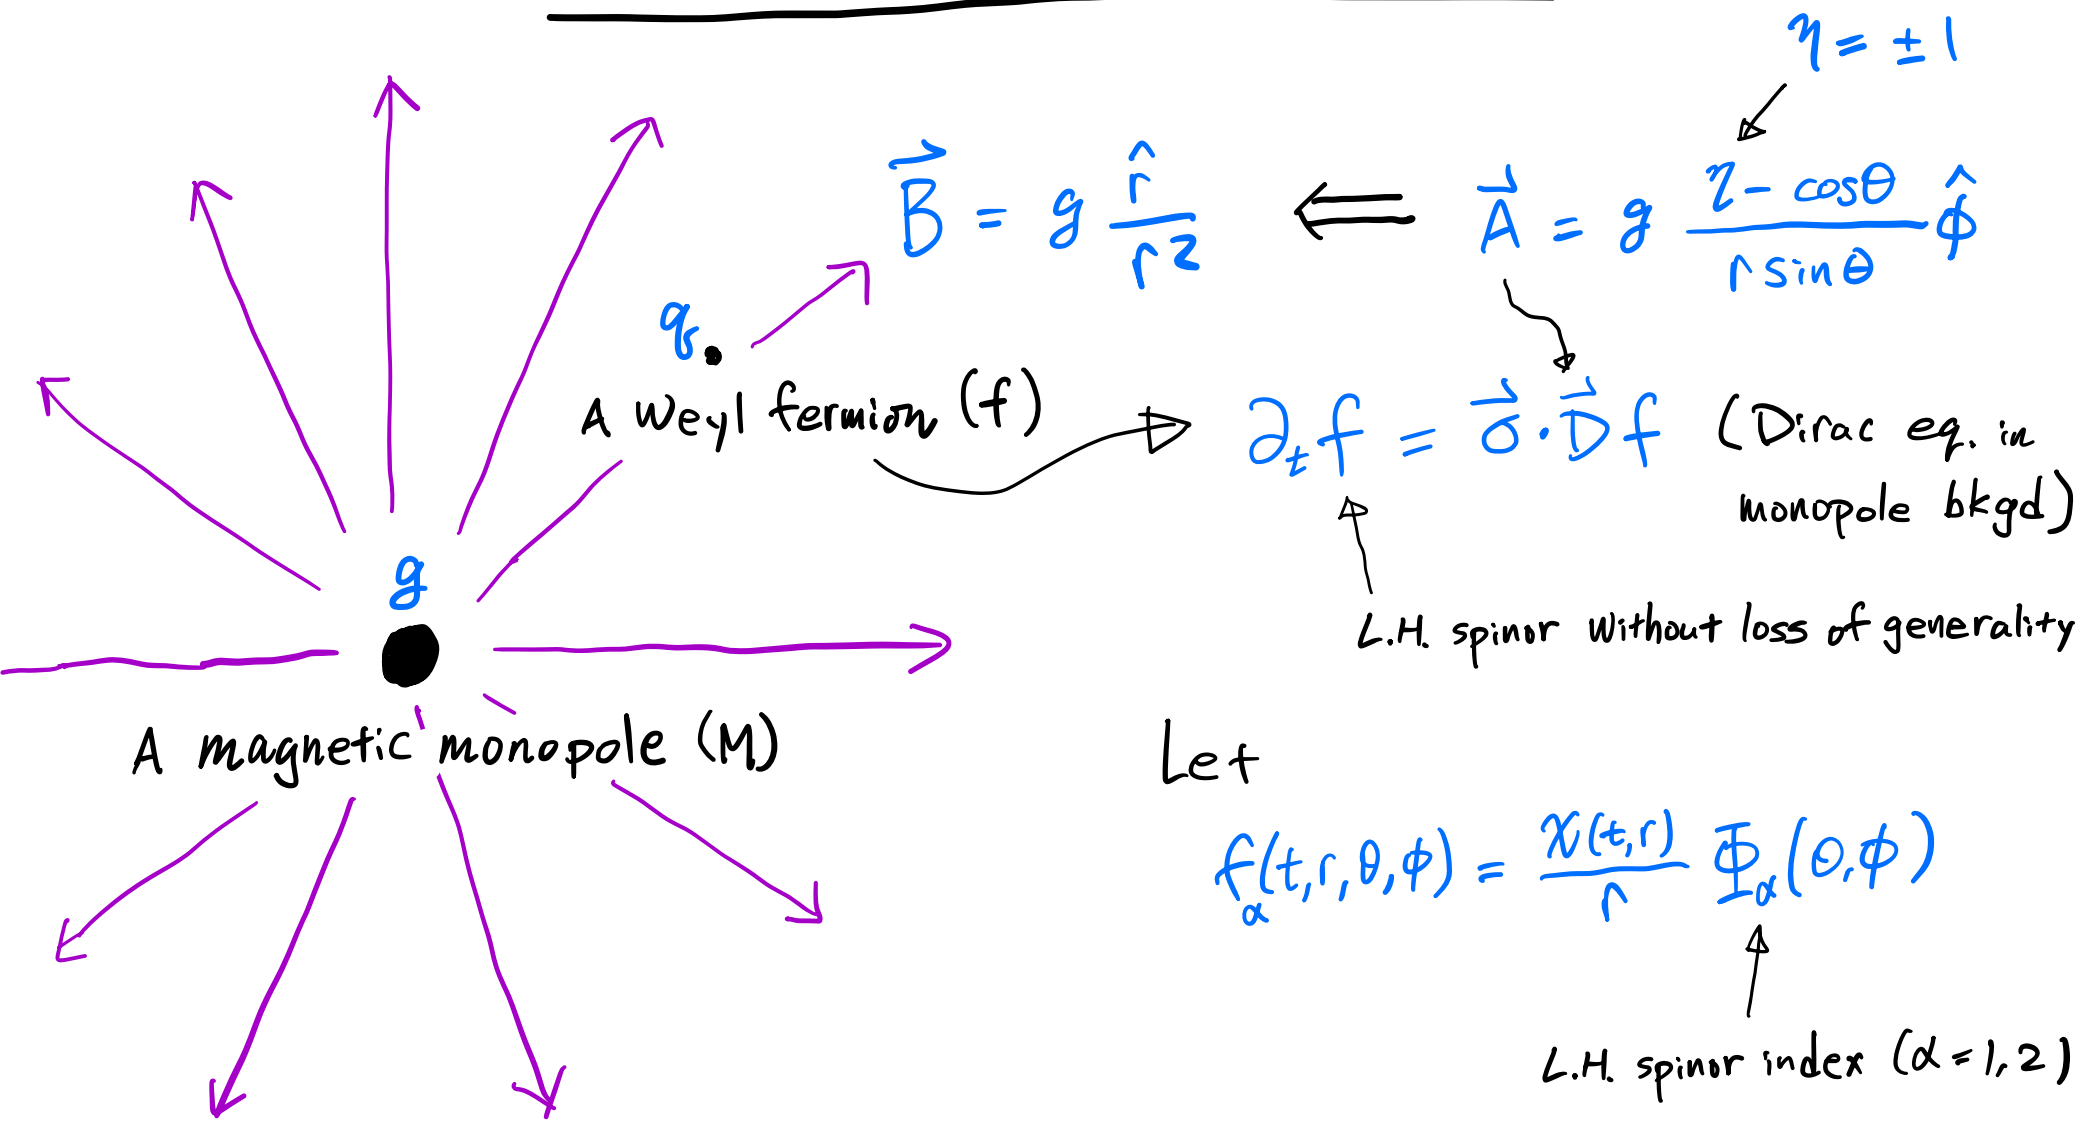 η = ±1
B⃗ = g r̂/r² ⇐ A⃗ = g (η - cosθ)/(r sinθ) φ̂
q
A Weyl fermion (f)
∂ₜf = σ⃗·D⃗ f (Dirac eq. in
monopole bkgd)
g
L.H. spinor without loss of generality
A magnetic monopole (M)
Let
f_α(t,r,θ,φ) = χ(t,r)/r Φ_α(θ,φ)
L.H. spinor index (α=1,2)